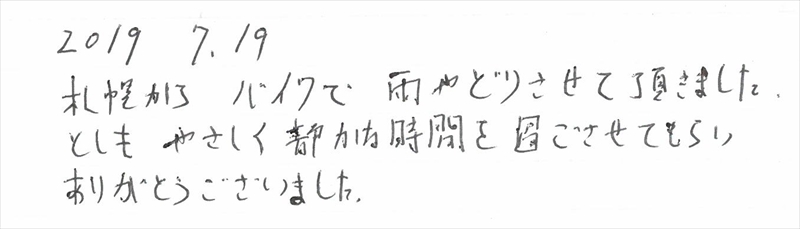 2019 7.19
札幌から バイクで 雨やどりさせて頂きました.
とても やさしく 静かな時間を 過ごさせてもらい
ありがとうございました.